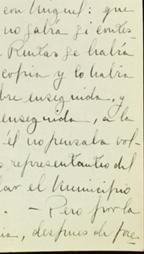 con Miguel: que
no sabía si contes
Rentas se había
copia y lo había
bre enseguida, y
enseguida, a la
él no pensaba vol-
representantes del
lar el Municipio
. — Pero por la
ia, después de